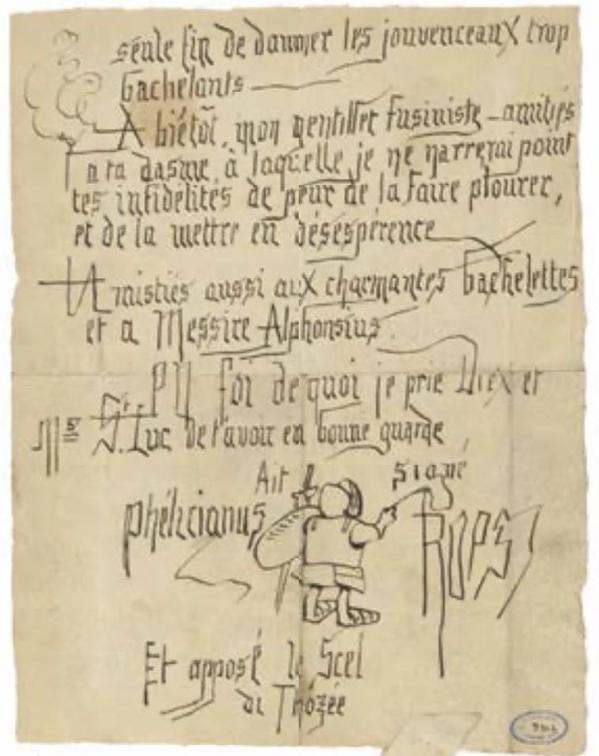 seule fin de damner les jouvenceaux trop
bachelants
A biétôt, mon gentillet fusiniste - amitiés
a ta dasme, à laquelle je ne narrerai point
tes infidélités de peur de la faire plourer,
et de la mettre en désespérence
Amistiés aussi aux charmantes bachelettes
et a Messire Alphonsius.
En foi de quoi je prie Diex et
Mgr St. Luc de t'avoir en bonne guarde
Ait signé
Phélicianus ROPS
Et apposé le Scel
di Thozée